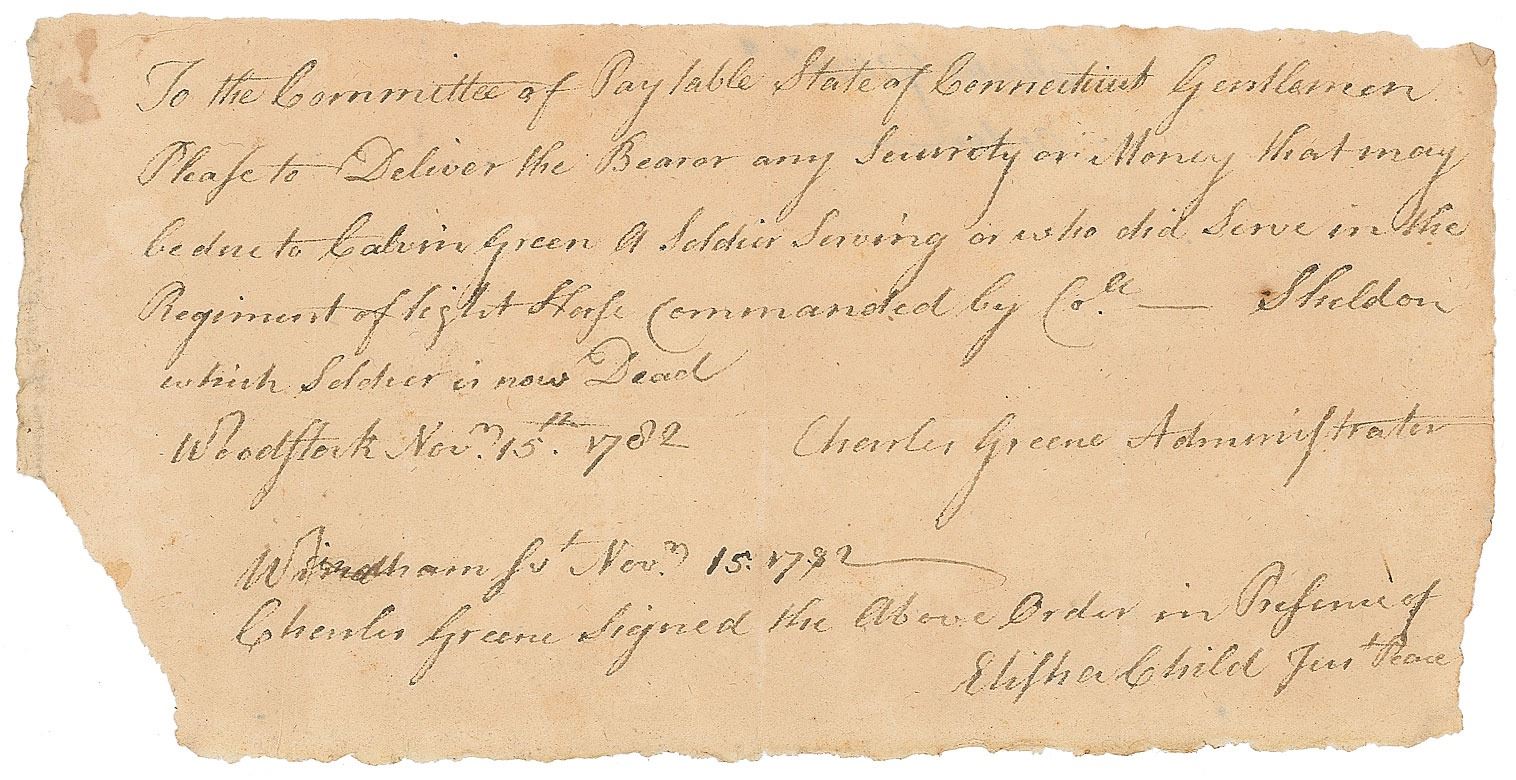 To the Committee of Pay table State of Connecticut Gentlemen
Please to Deliver the Bearor any Security or Money that may
be due to Calvin Green A Soldier Serving or who did Serve in the
Regiment of light Horse Commanded by Co.ll — Sheldon
which Soldier is now Dead
Woodstock Novm. 15th. 1782 Charles Greene Administrater
Windham Ss Novm. 15. 1782
Charles Greene Signed the Above Order in Presence of
Elisha Child Just Peace